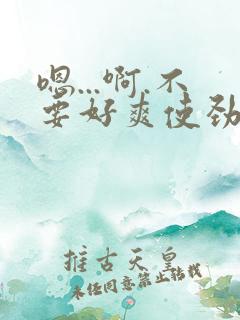 嗯...啊.不
要好爽使劲
推古天皇
未经同意禁止转载